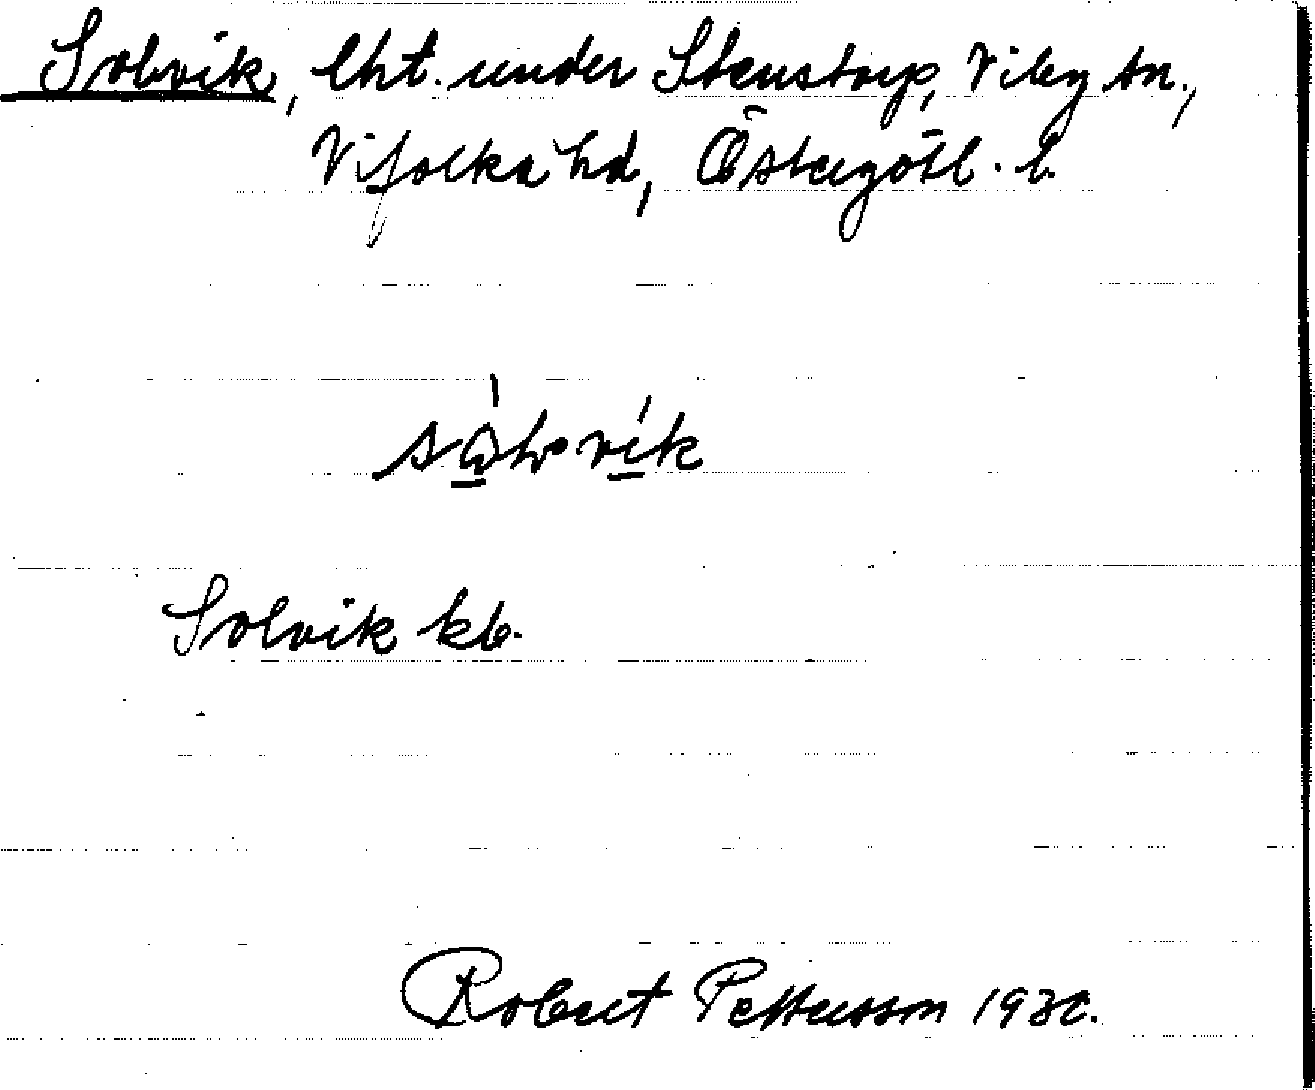 Solvik, lht. under Stenstorp, Viby sn.,
Vifolka hd, Östergötl. l.
Solvik kb.
Robert Pettersson 1930.